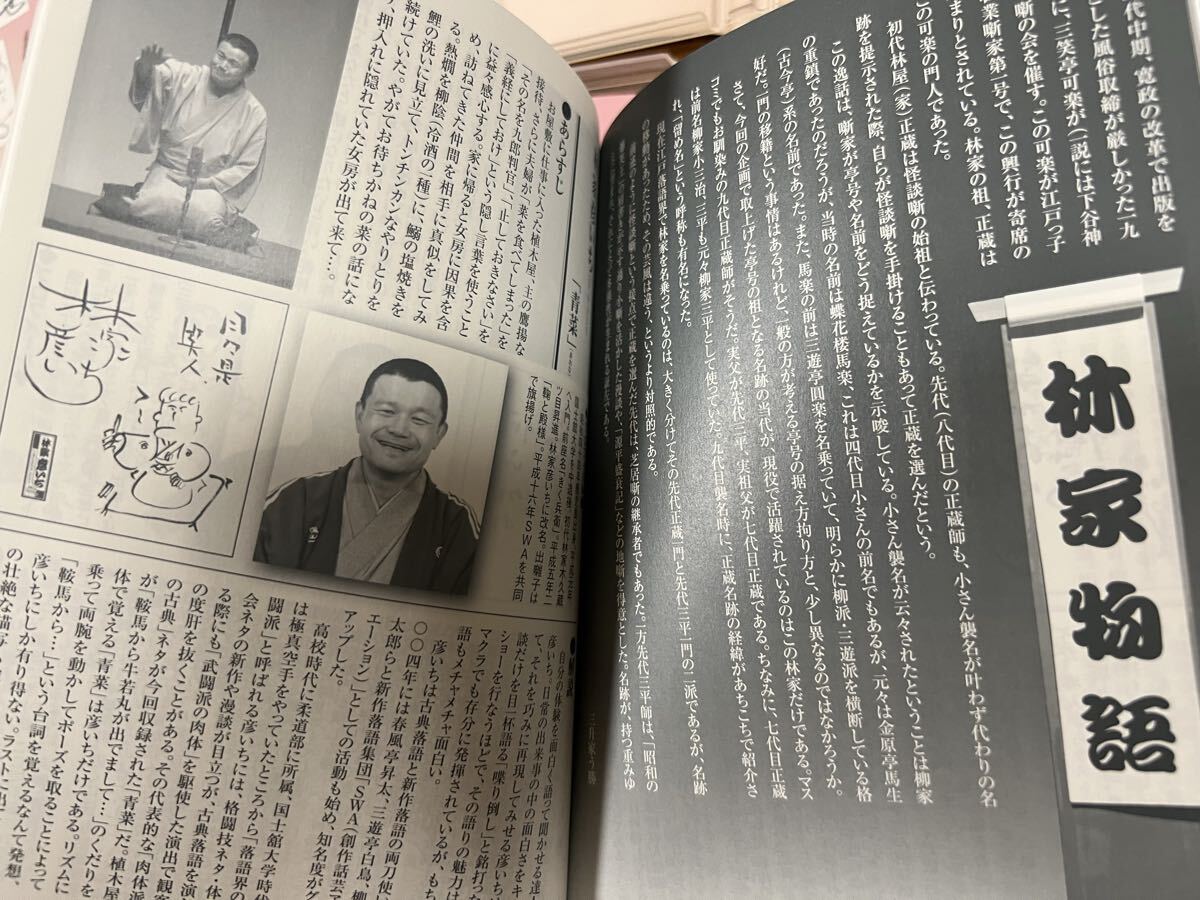 林家物語
代中期、寛政の改革で出版を
とした風俗取締が厳しかった一九
に、三笑亭可楽が(一説には下谷神
噺の会を催す。この可楽が江戸っ子
業噺家第一号で、この興行が寄席の
まりとされている。林家の祖、正蔵は
この可楽の門人であった。
初代林屋(家)正蔵は怪談噺の始祖と伝わっている。先代(八代目)の正蔵師も、小さん襲名が叶わず代わりの名
跡を提示された際、自らが怪談噺を手掛けることもあって正蔵を選んだという。
この逸話は、噺家が亭号や名前をどう捉えているかを示唆している。小さん襲名が云々されたということは柳家
の重鎮であったのだろうが、当時の名前は蝶花楼馬楽、これは四代目小さんの前名でもあるが、元々は金原亭馬生
(古今亭)系の名前であった。また、馬楽の前は三遊亭圓楽を名乗っていて、明らかに柳派・三遊派を横断している格
好だ。一門の移籍という事情はあるけれど、一般の方が考える亭号の据え方拘り方と、少し異なるのではなかろうか。
さて、今回の企画で取上げた亭号の祖となる名跡の当代が、現役で活躍されているのはこの林家だけである。マス
コミでもお馴染みの九代目正蔵師がそうだ。実父が先代三平、実祖父が七代目正蔵である。ちなみに、七代目正蔵
は前名柳家小三治、三平も元々柳家三平として使っていた。九代目襲名時に、正蔵名跡の経緯があちこちで紹介さ
れ、「留め名」という呼称も有名になった。
現在江戸落語界で林家を名乗っているのは、大きく分けてその先代正蔵一門と先代三平一門の二派であるが、名跡
の移動があったため、その芸風は違う、というより対照的である。
三升家う勝
●あらすじ
「青菜」
お屋敷に仕事に入った植木屋、主の鷹揚な
接待、さらに夫婦が「菜を食べてしまった」を
「その名を九郎判官」、「止しておきなさい」を
「義経にしておけ」という隠し言葉を使うこと
に益々感心する。家に帰ると女房に因果を含
め、訪ねてきた仲間を相手に真似をしてみ
る。熱燗を柳陰(冷酒の一種)に、鰯の塩焼きを
鯉の洗いに見立て、トンチンカンなやりとりを
続けていた。やがてお待ちかねの菜の話にな
り、押入れに隠れていた女房が出て来て…。
へ入門。前座名「きく兵衛」。平成五年二
ツ目昇進。林家彦いちに改名。出囃子は
「鞠と殿様」。平成十六年SWAを共同
で旗揚げ。
日々是
林家彦いち
自分の体験を面白く語って聞かせる達
彦いち。日常の出来事の中の面白さをキ
て、それを巧みに再現してみせる彦いち
談だけを目一杯語る「喋り倒し」と銘打っ
ショーを行なうほどで、その語りの魅力は
マクラでも存分に発揮されているが、もち
語もメチャメチャ面白い。
彦いちは古典落語と新作落語の両刀使い
〇〇四年には春風亭昇太、三遊亭白鳥、柳
太郎らと新作落語集団「SWA(創作話芸ア
エーション)」としての活動も始め、知名度がグ
アップした。
高校時代に柔道部に所属、国士舘大学時代
は極真空手をやっていたところから「落語界の
闘派」と呼ばれる彦いちには、格闘技ネタ・体
会ネタの新作や漫談が目立つが、古典落語を演
る際にも「武闘派の肉体」を駆使した演出で観客
の度肝を抜くことがある。その代表的な「肉体派
の古典」ネタが今回収録された「青菜」だ。植木屋
が「鞍馬から牛若丸が出でまして…」のくだりを
体で覚える「青菜」は彦いちだけである。リズムに
乗って両腕を動かしてポーズを取ることによって
「鞍馬から…」という台詞を覚えるなんて発想、
彦いちにしか有り得ない。ラストに出
の壮絶な描写